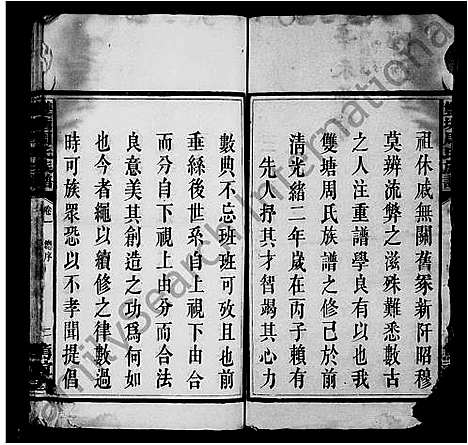 祖休戚無關舊冢新阡昭穆
莫辨流弊之滋殊難悉數古
之人注重譜學良有以也我
雙塘周氏族譜之修已於前
清光緒二年歲在丙子賴有
先人抒其才智竭其心力
數典不忘班班可攷且也前
垂絲後世系自上視下由合
而分自下視上由分而合法
良意美其創造之功爲何如
也今者繩以續修之律數過
時可族眾恐以不孝聞提倡
卷一
總序
FamilySearch International